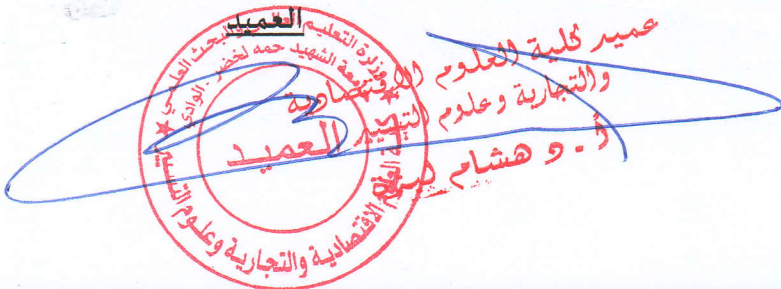 العميد
وزارة التعليم العالي والبحث العلمي
جامعة الشهيد حمه لخضر - الوادي
العميد
كلية العلوم الاقتصادية والتجارية وعلوم التسيير
عميد كلية العلوم الاقتصادية
والتجارية وعلوم التسيير
أ. د هشام